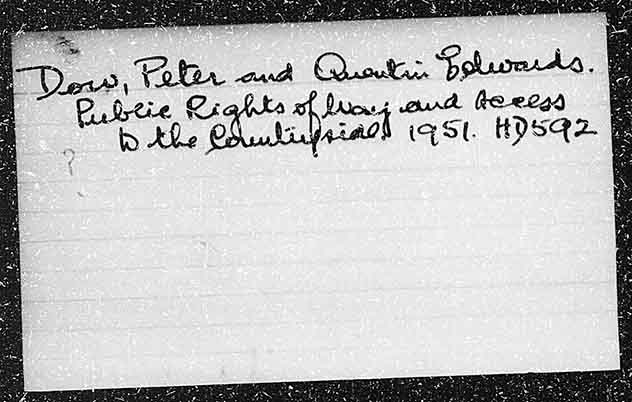 Dow, Peter and Quentin Edwards.
Public Rights of Way and Access
to the Countryside 1951. HD592
?